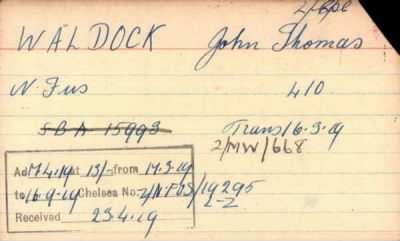 L/Cpl
WALDOCK John Thomas
N. Fus 410
SBA 15993 Trans 16-3-19
2/MW/668
Ad 17.4.19 at 13/- from 17.3.19
to 16.9.19 Chelsea No. 2/N.FUS/19295
L-Z
Received 23.4.19